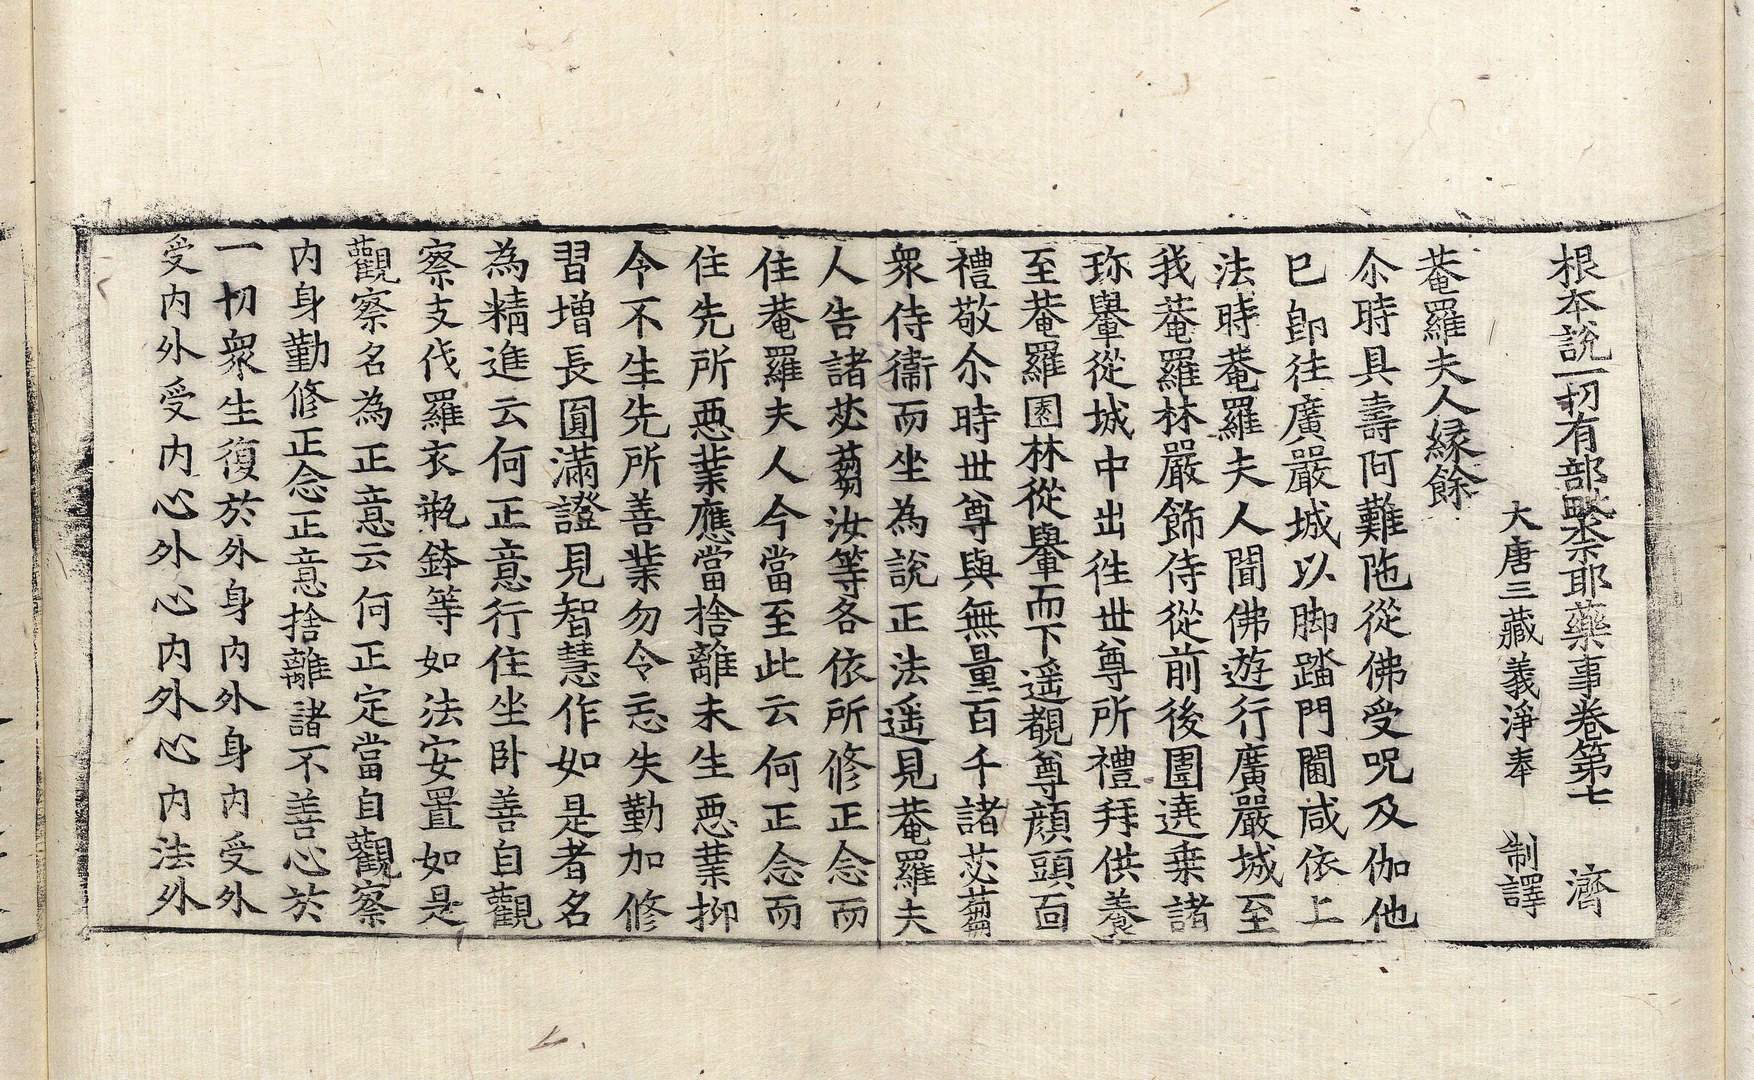 根本說一切有部毗柰耶藥事卷第七　濟
大唐三藏義淨奉　制譯
菴羅夫人緣餘
尒時具壽阿難陁從佛受呪及伽他
已即往廣嚴城以脚踏門閫咸依上
法時菴羅夫人聞佛遊行廣嚴城至
我菴羅林嚴飾侍從前後圍遶乗諸
珎轝從城中出徃世尊所禮拜供養
至菴羅園林從轝而下遥覩尊顔頭面
禮敬尒時世尊與無量百千諸苾蒭
衆侍衛而坐為說正法遥見菴羅夫
人告諸苾蒭汝等各依所修正念而
住菴羅夫人今當至此云何正念而
住先所惡業應當捨離未生惡業抑
令不生先所善業勿令忘失勤加修
習增長圓滿證見智慧作如是者名
為精進云何正意行住坐卧善自觀
察支伐羅衣瓶鉢等如法安置如是
觀察名為正意云何正定當自觀察
内身勤修正念正意捨離諸不善心於
一切衆生復於外身内外身内受外
受内外受内心外心内外心内法外